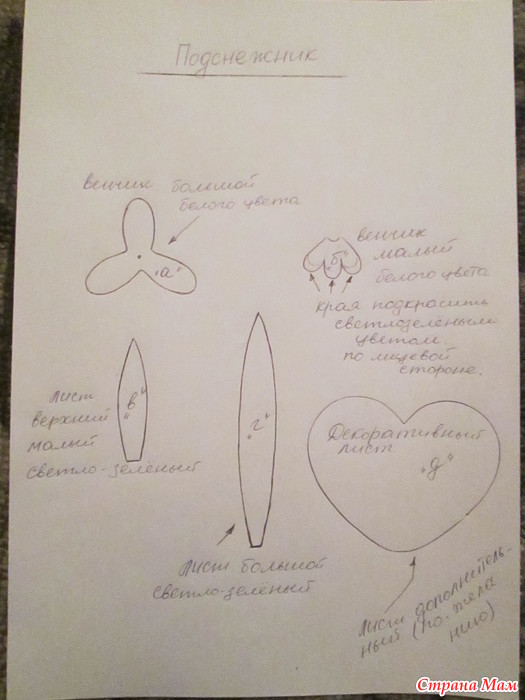 Подснежник
венчик большой
белого цвета
„а“
венчик
малый
белого цвета
„б“
края подкрасить
светлозелёным
цветом
по лицевой
стороне.
лист
верхний
малый
светло-зелёный
„в“
„г“
Лист большой
светло-зелёный
Декоративный
лист
„д“
лист дополнитель-
ный (по жела
нию)
Страна Мам